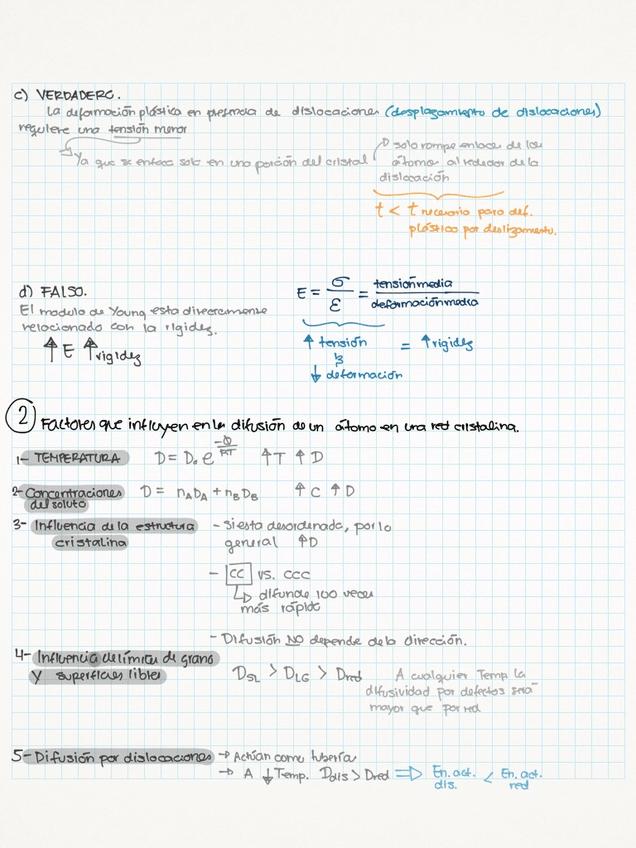 c) VERDADERO.
La deformación plástica en presencia de dislocaciones (desplazamiento de dislocaciones)
requiere una tensión menor
Ya que se enfoca solo en una porción del cristal
solo rompe enlace de los
átomos al rededor de la
dislocación
t < t necesario para def.
plástica por deslizamiento.
d) FALSO.
El modulo de Young esta directamente
relacionado con la rigidez.
↑ E ↑ rigidez
E = σ/ε = tensión media/deformación media
↑ tensión = ↑ rigidez
↓ deformación
2 Factores que influyen en la difusión de un átomo en una red cristalina.
1- TEMPERATURA D = D₀ e^(-Q/RT) ↑T ↑D
2- Concentraciones D = nADA + nBDB ↑C ↑D
del soluto
3- Influencia de la estructura
cristalina
- si esta desordenada, por lo
general ↑D
- CC vs. CCC
↳ difunde 100 veces
más rápido
- Difusión NO depende de la dirección.
4- Influencia de límites de grano
y superficies libles
DSL > DLG > Dred
A cualquier Temp la
difusividad por defectos será
mayor que por red
5- Difusión por dislocaciones → Actúan como tubería
→ A ↓ Temp. Ddis > Dred ⇒ En. act. dis. < En. act. red